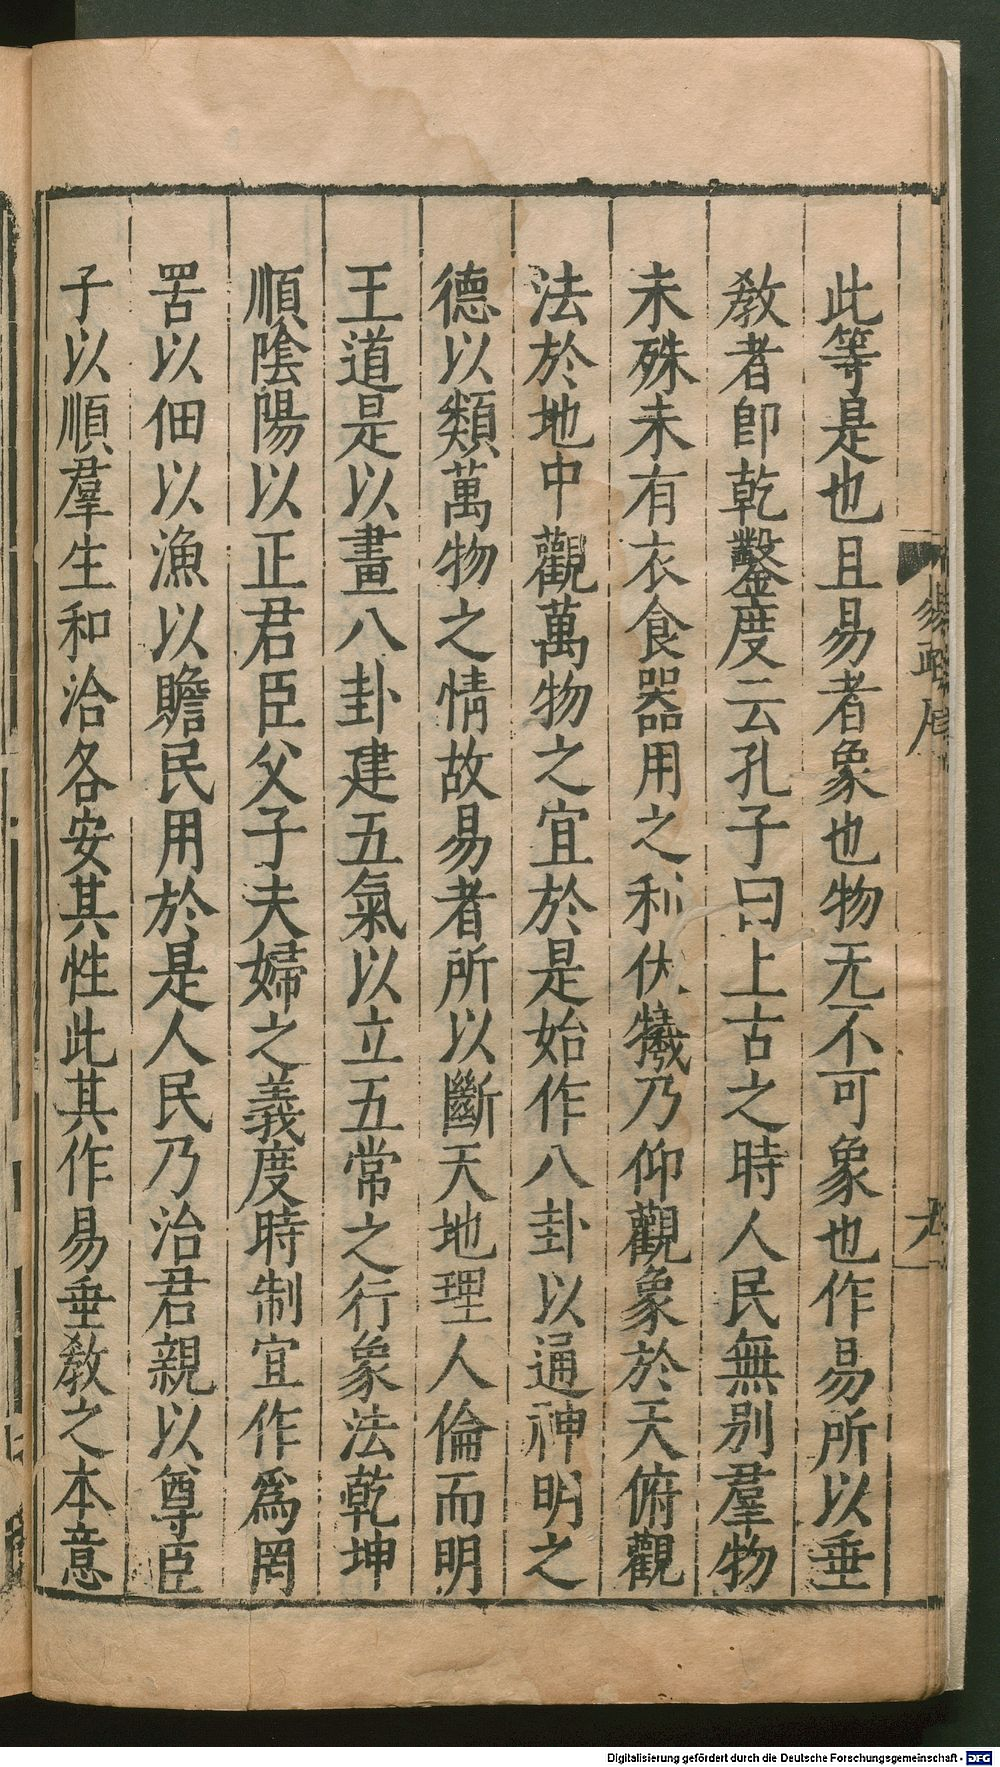 此等是也且易者象也物无不可象也作易所以垂
教者卽乾鑿度云孔子曰上古之時人民無别羣物
未殊未有衣食器用之利伏犧乃仰觀象於天俯觀
法於地中觀萬物之宜於是始作八卦以通神明之
德以類萬物之情故易者所以斷天地理人倫而明
王道是以畫八卦建五氣以立五常之行象法乾坤
順陰陽以正君臣父子夫婦之義度時制宜作爲罔
罟以佃以漁以贍民用於是人民乃治君親以尊臣
子以順羣生和洽各安其性此其作易垂教之本意
Digitalisierung gefördert durch die Deutsche Forschungsgemeinschaft - DFG